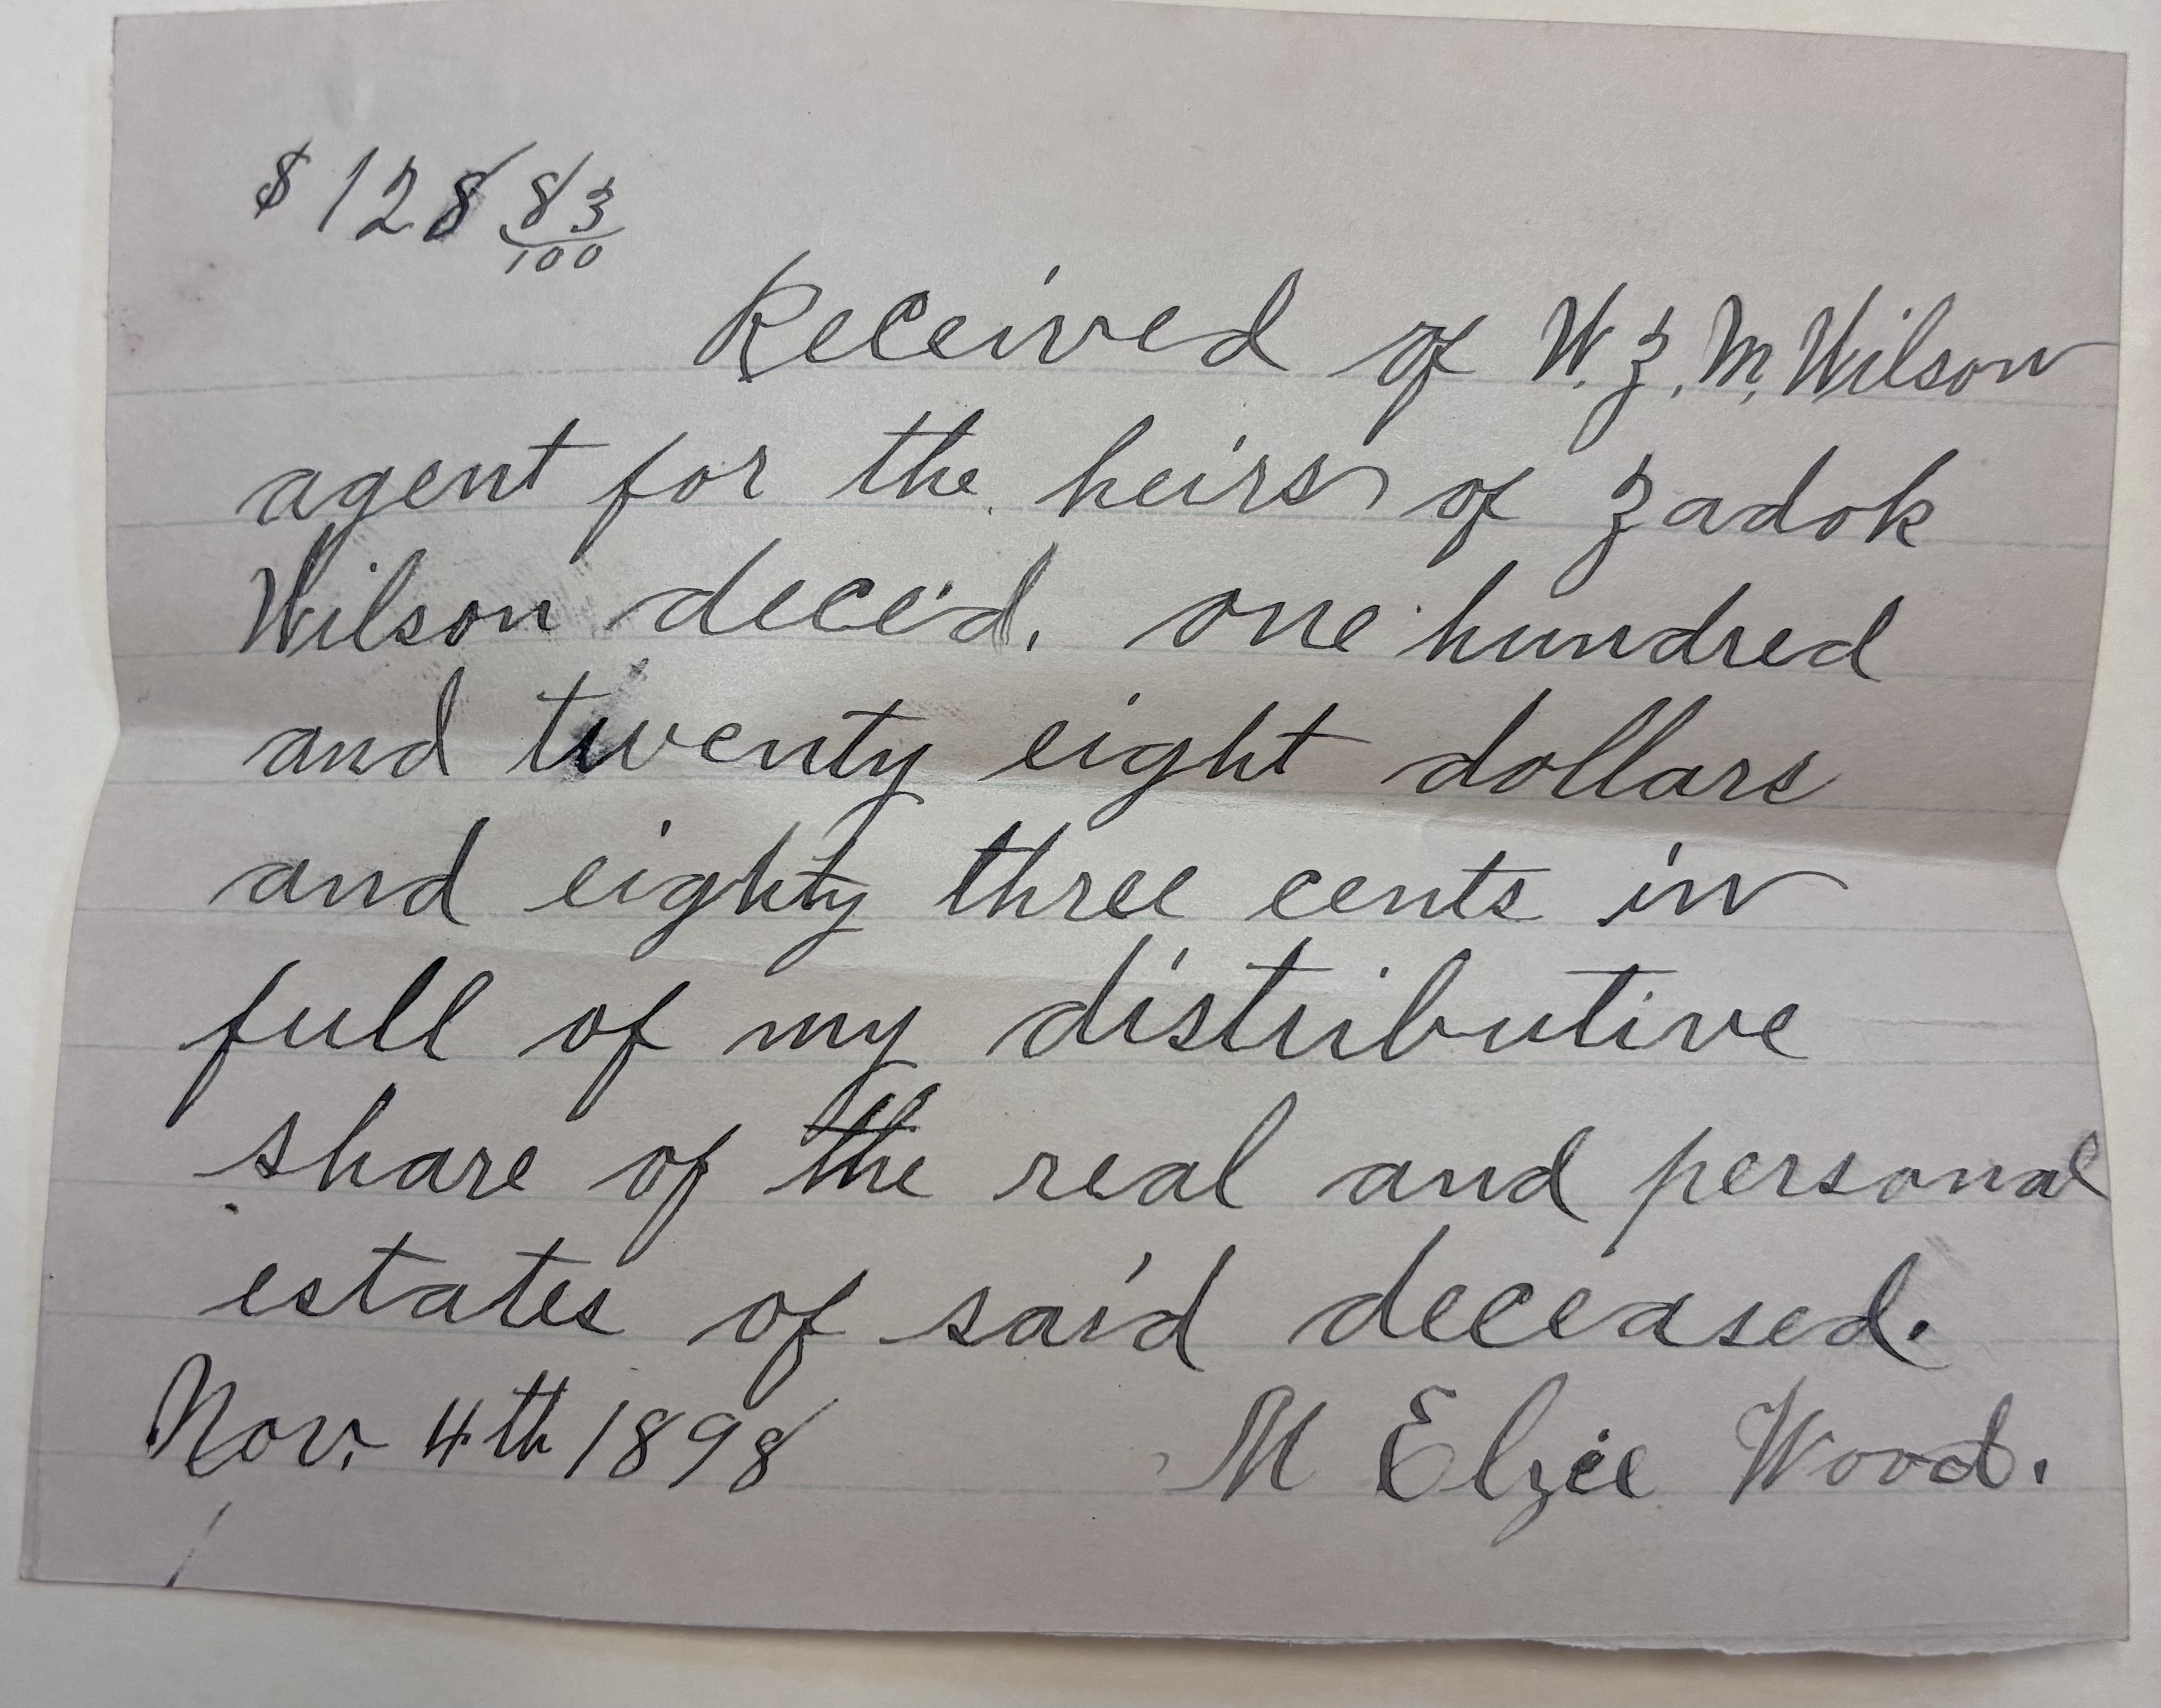 $128 83/100
Received of W. Z. M. Wilson
agent for the heirs of Zadok
Wilson dece'd. one hundred
and twenty eight dollars
and eighty three cents in
full of my distributive
share of the real and personal
estates of said deceased.
Nov. 4th 1898 M Elzie Wood.